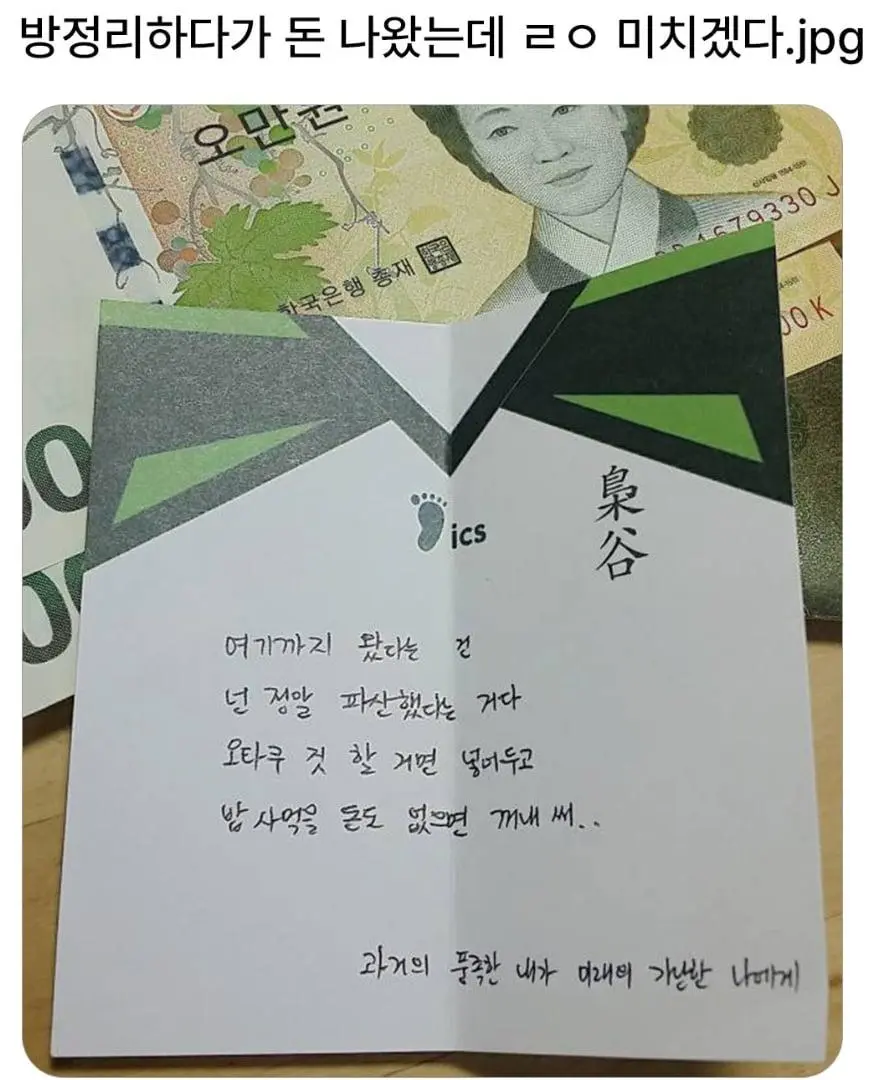 방정리하다가 돈 나왔는데 ㄹㅇ 미치겠다.jpg
오만원
한국은행 총재
79330 J
00K
00
00
ics
梟谷
여기까지 왔다는 건
넌 정말 파산했다는 거다
오타쿠 짓 할 거면 넣어두고
밥 사먹을 돈도 없으면 꺼내 써..
과거의 풍족한 내가 미래의 가난한 나에게